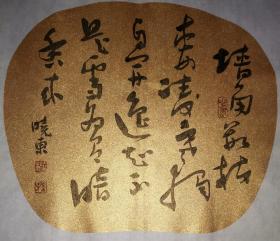 墙角数枝
梅凌寒独
自开遥知不
是雪为有暗
香来
晓东